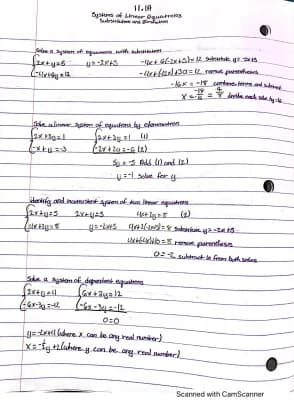 11.1A
Systems of Linear Equations
Substitution and Elimination
Solve a system of equations with substitution
2x+y=5 y=-2x+5 -4x+6(-2x+5)=12 Substitute y=-2x+5
-4x+6y=12 -4x+(-12x)+30=12 remove parenthesis
-16x=-18 combine terms and subtract
divide each side by -16
Solve a linear system of equations by elimination
2x+3y=1 2x+3y=1 (1)
-x+y=-3 -2x+2y=-6 (2)
5y=-5 Add (1) and (2)
y=-1 solve for y
Identify an inconsistent system of two linear equations
2x+y=5 2x+y=5 4x+2y=8 (2)
4x+2y=8 y=-2x+5 4x+2(-2x+5)=8 Substitute y=-2x+5
=8 remove parenthesis
0=-2 subtract 10 from both sides
Solve a system of dependent equations
6x+3y=12
-6x-3y=-12 -6x-3y=-12
0=0
(where x can be any real number)
(where y can be any real number)
Scanned with CamScanner